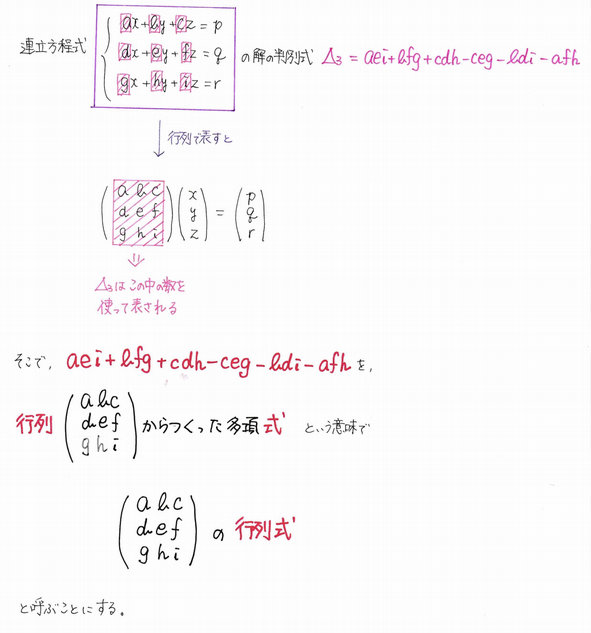 連立方程式 { ax+by+cz=p
dx+ey+fz=q
gx+hy+iz=r
の解の判別式 Δ₃ = aei+bfg+cdh-ceg-bdi-afh
行列で表すと
( a b c
d e f
g h i )
( x
y
z )
=
( p
q
r )
Δ₃はこの中の数を
使って表される
そこで, aei+bfg+cdh-ceg-bdi-afh を,
行列 ( a b c
d e f
g h i ) からつくった多項式 という意味で
( a b c
d e f
g h i ) の 行列式
と呼ぶことにする。